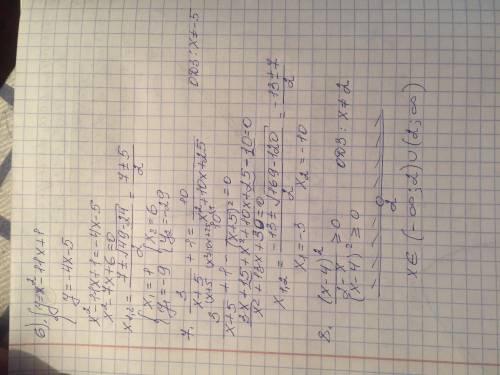 6). { y = x² - 11x + 1
y = -4x - 5
x² - 11x + 1 = -4x - 5
x² - 7x + 6 = 0
x₁,₂ = (7 ± √(49-24))/2 = (7 ± 5)/2
{ x₁ = 1 { x₂ = 6
y₁ = -9 y₂ = -29
7. 3/(x+5) + 1 = 10/(x² + 10x + 25) ОДЗ: x ≠ -5
3x + 15 + x² + 10x + 25 - 10 = 0
x² + 13x + 30 = 0
x₁,₂ = (-13 ± √(169-120))/2 = (-13 ± 7)/2
x₁ = -3 x₂ = -10
8. (x-4)²/(2-x) ≥ 0
(x-4)² ≥ 0 ОДЗ: x ≠ 2
2
x ∈ (-∞; 2) ∪ (2; ∞)